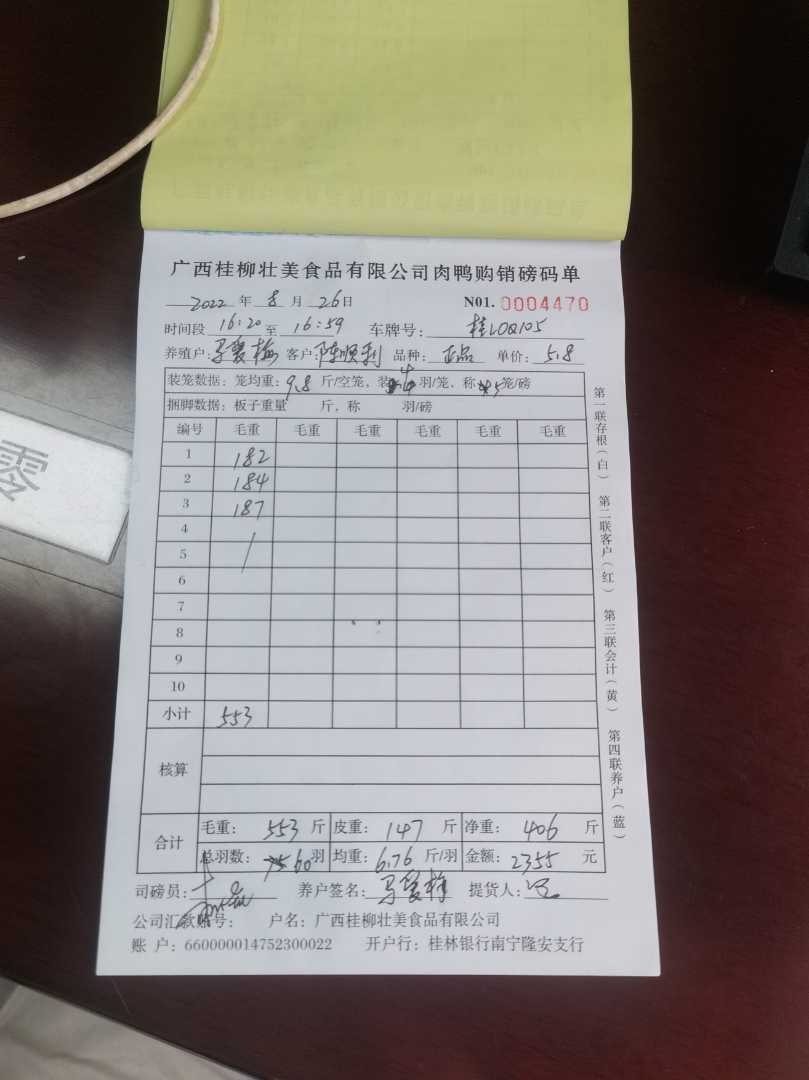 广西桂柳壮美食品有限公司肉鸭购销磅码单
2022 年 8 月 26 日 N01. 0004470
时间段 16:20 至 16:59 车牌号: 桂L0Q105
养殖户: 马爱梅 客户: 陈顺利 品种: 正品 单价: 5.8
装笼数据: 笼均重: 9.8 斤/空笼、装 4 羽/笼、称 5 笼/磅
捆脚数据: 板子重量 斤, 称 羽/磅
编号 毛重 毛重 毛重 毛重 毛重 毛重
1 182
2 184
3 187
4
5 /
6
7
8
9
10
小计 553
核算
合计
毛重: 553 斤 皮重: 147 斤 净重: 406 斤
总羽数: 60 羽 均重: 6.76 斤/羽 金额: 2355 元
司磅员: 养户签名: 马爱梅 提货人:
公司汇款账号: 户名: 广西桂柳壮美食品有限公司
账 户: 660000014752300022 开户行: 桂林银行南宁隆安支行
第一联存根(白) 第二联客户(红) 第三联会计(黄) 第四联养户(蓝)
零